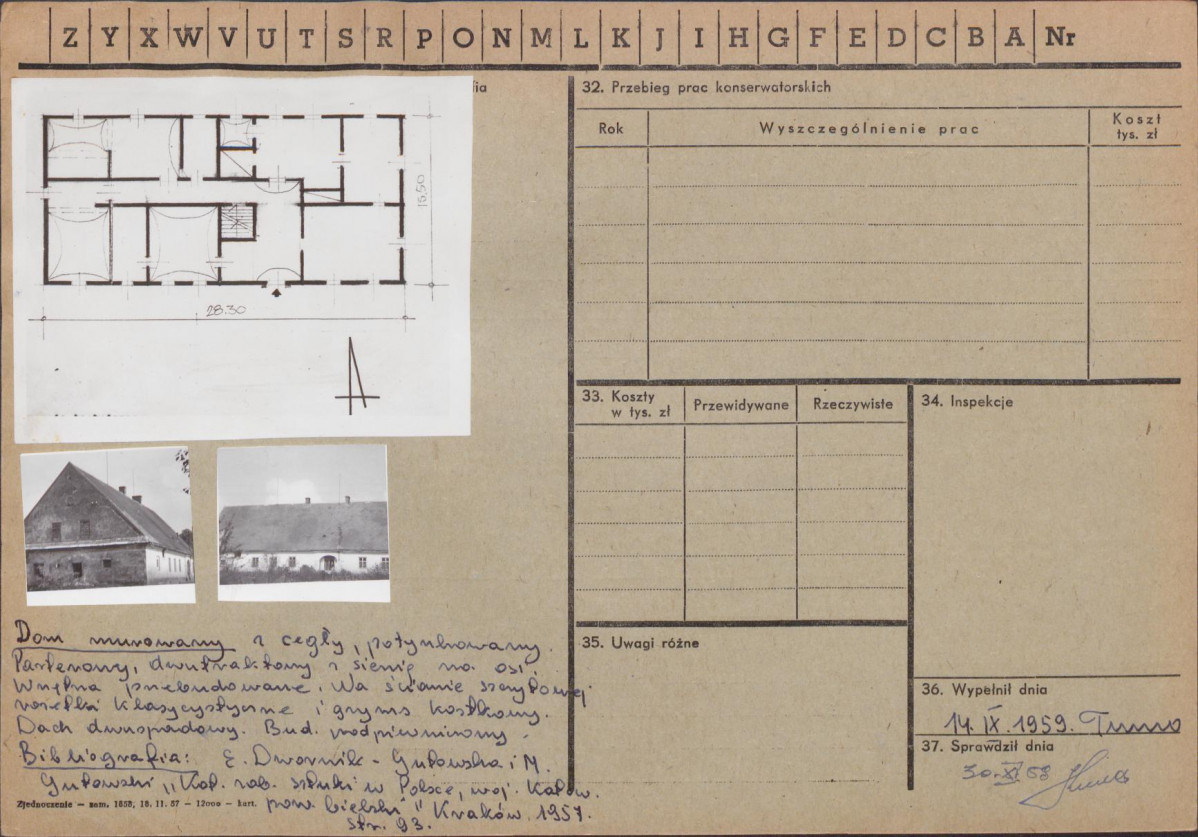 Z Y X W V U T S R P O N M L K J I H G F E D C B A Nr
fia
16,50
28.30
Dom murowany z cegły, potynkowany.
Parterowy, dwutraktowy z sienią na osi.
Wnętrza przebudowane. Na ścianie szczytowej
rozetki klasycystyczne i gzyms kostkowy.
Dach dwuspadowy. Bud. podpiwniczony.
Bibliografia: E. Dwornik-Gutowska i M.
Gutowski „Kat. zab. sztuki w Polsce, woj. Katow.
pow. bielski" Kraków 1957.
str. 93.
Zjednoczenie — zam. 1858, 18. 11. 57 — 12000 — kart.
32. Przebieg prac konserwatorskich
Rok
Wyszczególnienie prac
Koszt
tys. zł
33. Koszty
w tys. zł
Przewidywane
Rzeczywiste
34. Inspekcje
35. Uwagi różne
36. Wypełnił dnia
14. IX. 1959.
37. Sprawdził dnia
30. XI